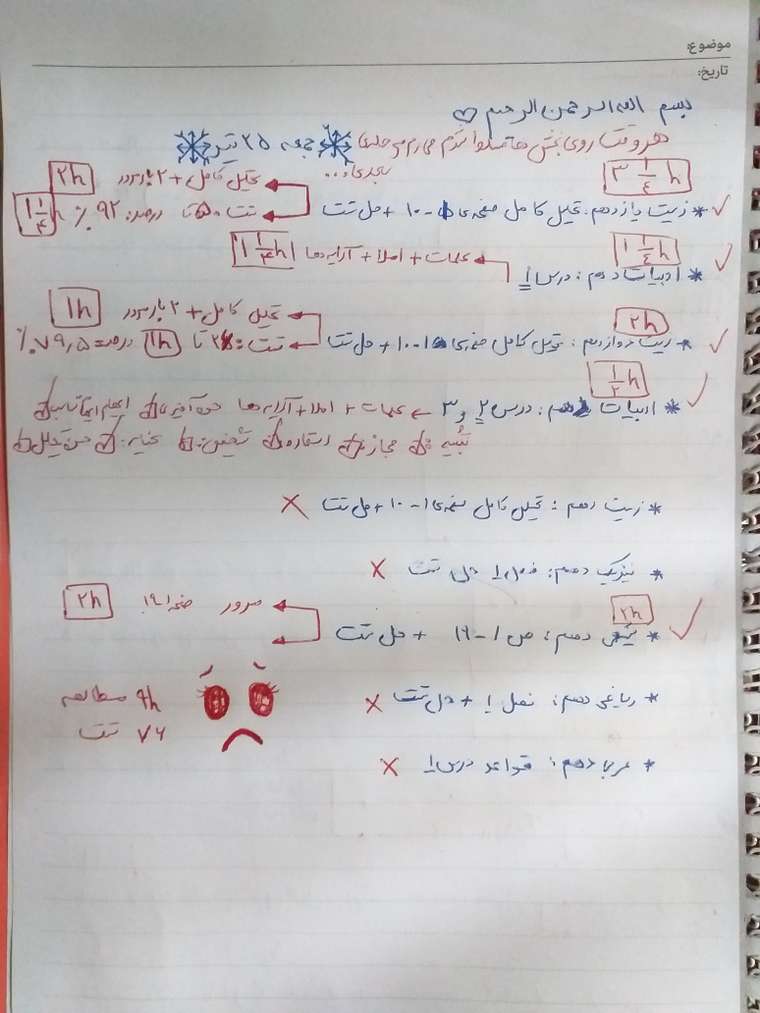 موضوع:
تاریخ:
بسم الله الرحمن الرحیم ♡
هر وقت روی بخش ها مسلط شدم می رم مرحله ی بعدی و...
جمعه ۲۵ تیر
۳ ۱/۴ h
* زیست یازدهم: تحلیل کامل صفحه ی ۱-۱۰ + حل تست
تحلیل کامل + ۲ بار مرور ۲h
تست: ۵۰ تا درصد: ۹۲ ٪ ۱ ۱/۴ h
۱ ۱/۴ h
* ادبیات دهم: درس ۱
کلمات + املا + آرایه ها ۱ ۱/۴ h
۲h
* زیست دوازدهم: تحلیل کامل صفحه ی ۱-۱۰ + حل تست
تحلیل کامل + ۲ بار مرور ۱h
تست: تا ۱h درصد: ۷۹,۵ ٪
۱/۲ h
* ادبیات دهم: درس ۲ و ۳ ← کلمات + املا + آرایه ها
تشبیه مجاز استعاره تشخیص: کنایه: حسن تعلیل
* زیست دهم: تحلیل کامل صفحه ی ۱-۱۰ + حل تست ×
* فیزیک دهم: فصل ۱ حل تست ×
۲h
* شیمی دهم: ص ۱-۱۹ + حل تست
مرور صفحه ۱-۱۹ ۲h
* ریاضی دهم: فصل ۱ + حل تست ×
۹h مطالعه
۷۶ تست
* عربی دهم: قواعد درس ۱ ×